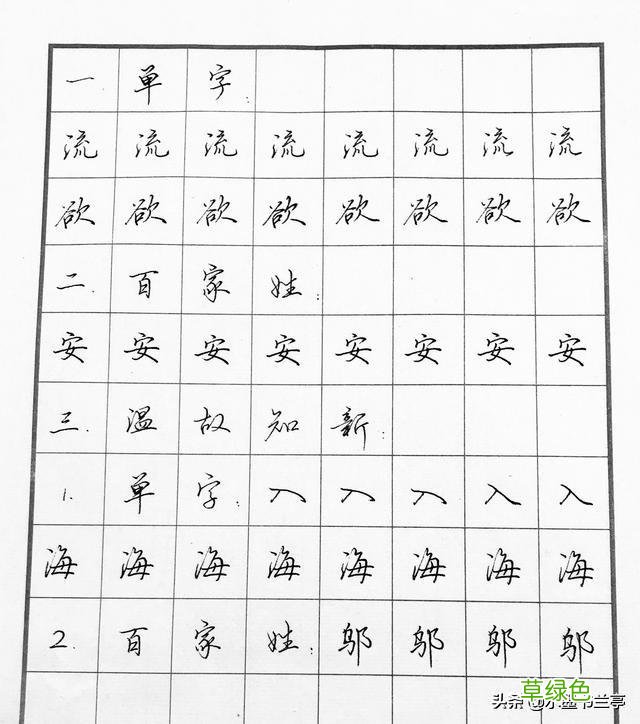 一 单 字
流 流 流 流 流 流 流 流
欲 欲 欲 欲 欲 欲 欲 欲
二. 百 家 姓:
安 安 安 安 安 安 安 安
三. 温 故 知 新:
1. 单 字: 入 入 入 入 入
海 海 海 海 海 海 海 海
2. 百 家 姓: 邬 邬 邬 邬
草绿色
头条 @小楷书兰亭